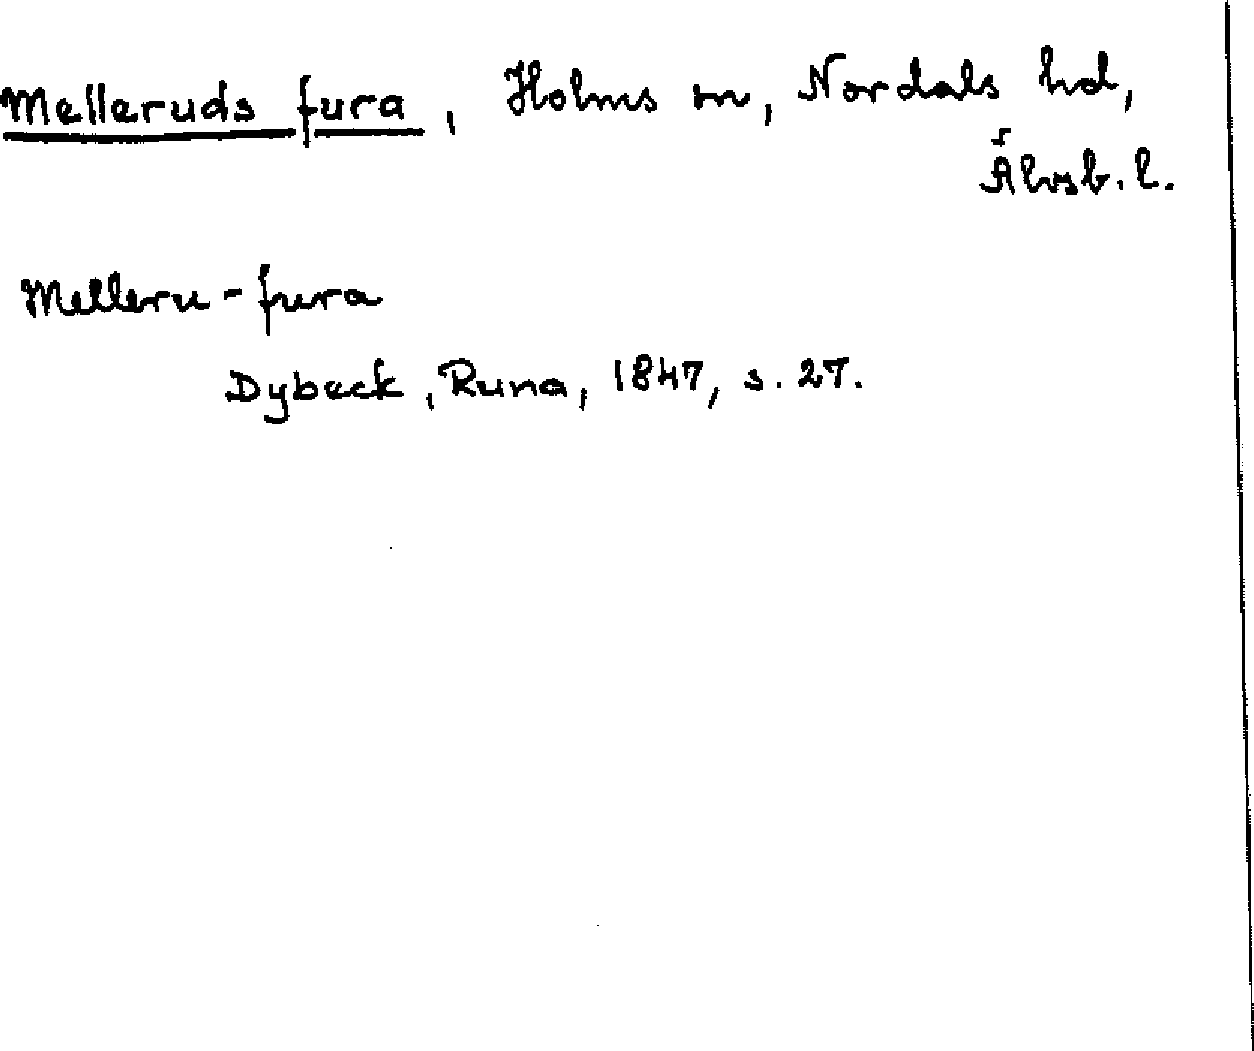 Melleruds fura, Holms sn, Nordals hd,
Älvsb. l.
Melleru-fura
Dybeck, Runa, 1847, s. 27.